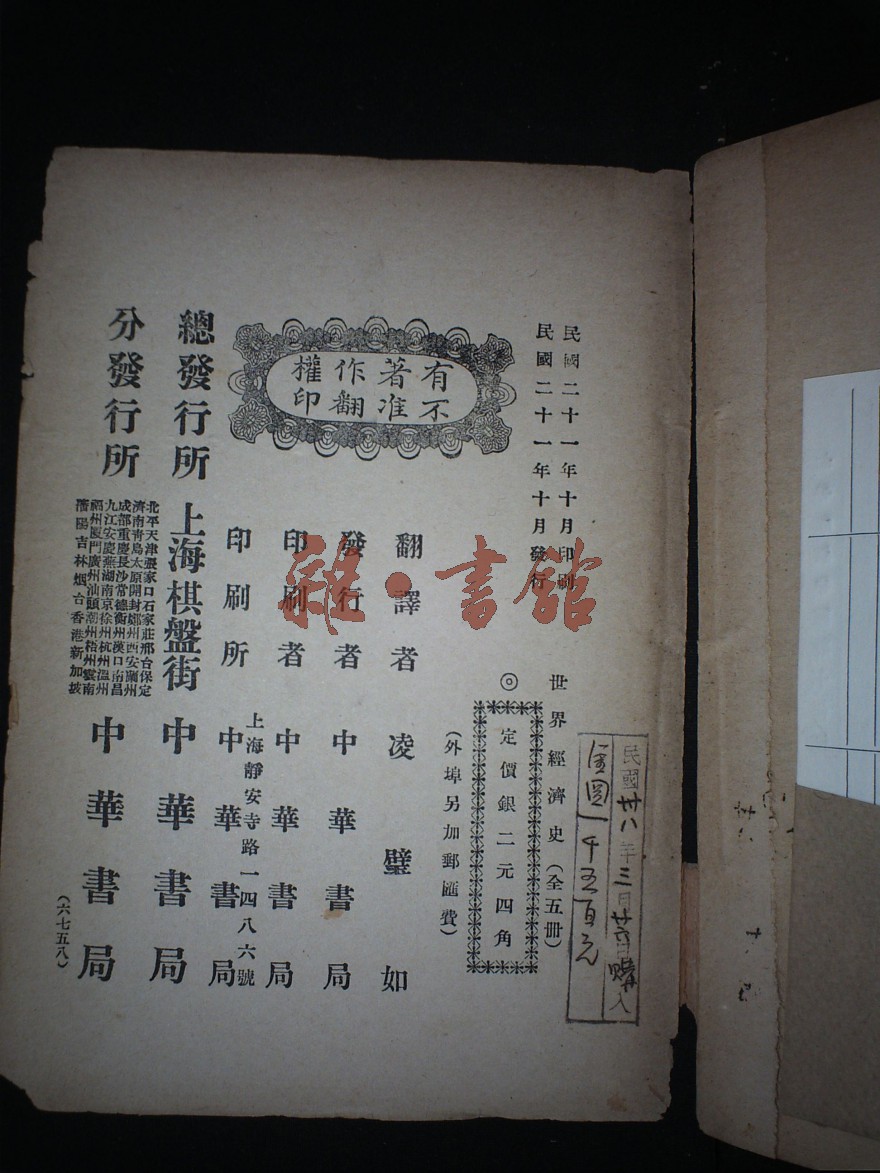 民國二十一年十月印刷
民國二十一年十月發行
有著作權
不准翻印
世界經濟史(全五冊)
◎定價銀二元四角
(外埠另加郵匯費)
翻譯者 凌璧如
發行者 中華書局
印刷者 中華書局
上海靜安寺路一四八六號
印刷所 中華書局
總發行所 上海棋盤街 中華書局
分發行所
北平天津張家口石家莊邢台保定
濟南青島太原開封鄭州西安蘭州
成都重慶長沙常德衡州漢口南昌
九江安慶蕪湖南京徐州杭州溫州
福州廈門廣州汕頭潮州梧州雲南
瀋陽吉林烟台香港新加坡
中華書局
(六七五八)
民國卅八年三月 購入
金圓一千五百元
雜·書館